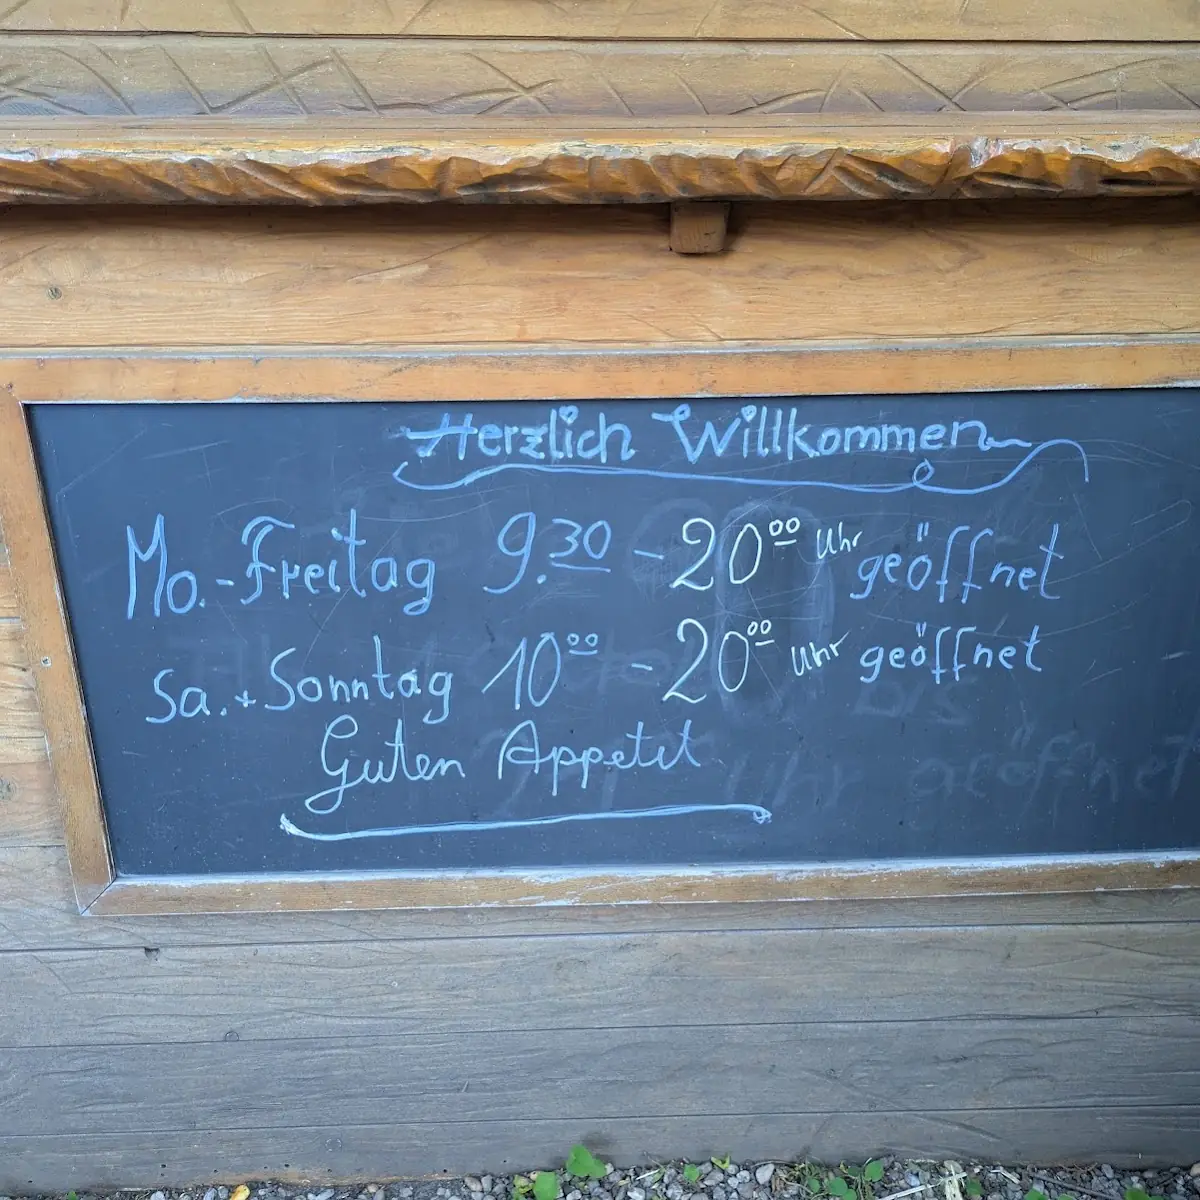 Herzlich Willkommen
Mo.-Freitag 9.30 - 20⁰⁰ Uhr geöffnet
Sa. + Sonntag 10⁰⁰ - 20⁰⁰ Uhr geöffnet
Guten Appetit